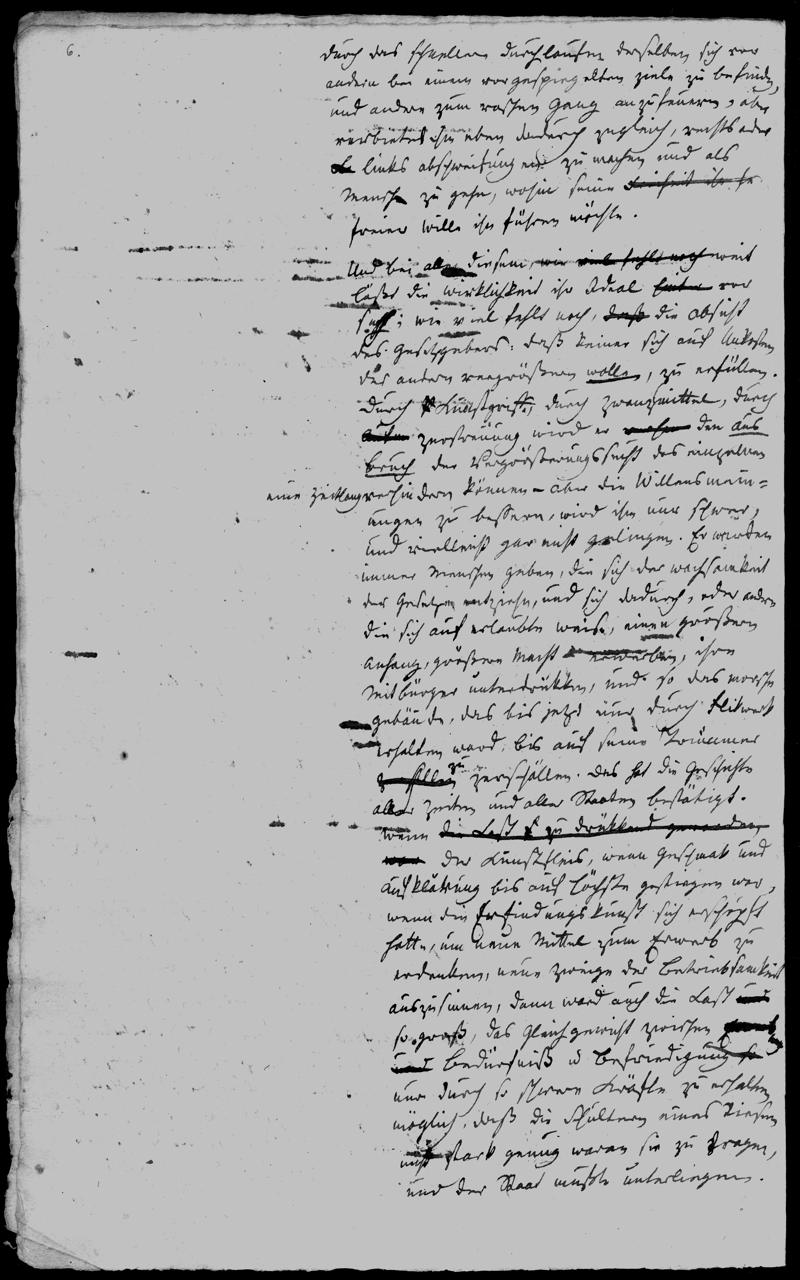 6.
durch das schnellere durchlaufen desselben sich vor
andern bei einem vorgespiegelten ziele zu befinden,
und andere zum raschen Gang anzufeuern, aber
verbietet ihm eben dadurch zugleich, rechts oder
links abschweifungen zu machen und als
Mensch zu gehn, wohin seine Freiheit ihn
freier wille ihn führen möchte.
Und bei alle diesem, wie viel fehlt noch weit
läßt die wirklichkeit ihr Ideal hinter vor
sich; wie viel fehlt noch, daß die absicht
des Gesetzgebers: daß keiner sich auf Unkosten
des andern vergrößern wolle, zu erfüllen.
Durch Kunstgriffe, durch zwangsmittel, durch
zerstreuung wird er den aus
bruch der Vergrößerungssucht des einzelnen
eine Zeitlang verhindern können – aber die Willensmein=
ungen zu bessern, wird ihm nur schwer,
und vielleicht gar nicht gelingen. Es würden
immer Menschen geben, die sich der wachsamkeit
der Gesetze entziehn, und sich dadurch, oder andre
die sich auf erlaubte weise, einen größern
anhang, größere Macht erwerben, ihre
Mitbürger unterdrükken, und so das morsche
gebäude, das bis jetzt nur durch Flikwerk
erhalten ward, bis auf seine Trümmer
zu zerschällen. Das hat die Geschichte
aller zeiten und aller Staaten bestätigt.
Wenn die Last zu drükkend geworden,
war der Kunstfleis, wenn Geschmak und
aufklärung bis aufs höchste gestiegen war,
wenn die Erfindungskunst sich erschöpft
hatte, um neue Mittel zum Erwerb zu
erdenken, neue zweige der Betriebsamkeit
auszusinnen, dann ward auch die Last und
so groß, das Gleichgewicht zwischen
und Bedürfniß u Befriedigung so
nur durch so schwere Kräfte zu erhalten
möglich, daß die Schultern eines Riesen
nicht stark genug waren sie zu tragen,
und der Staat mußte unterliegen.